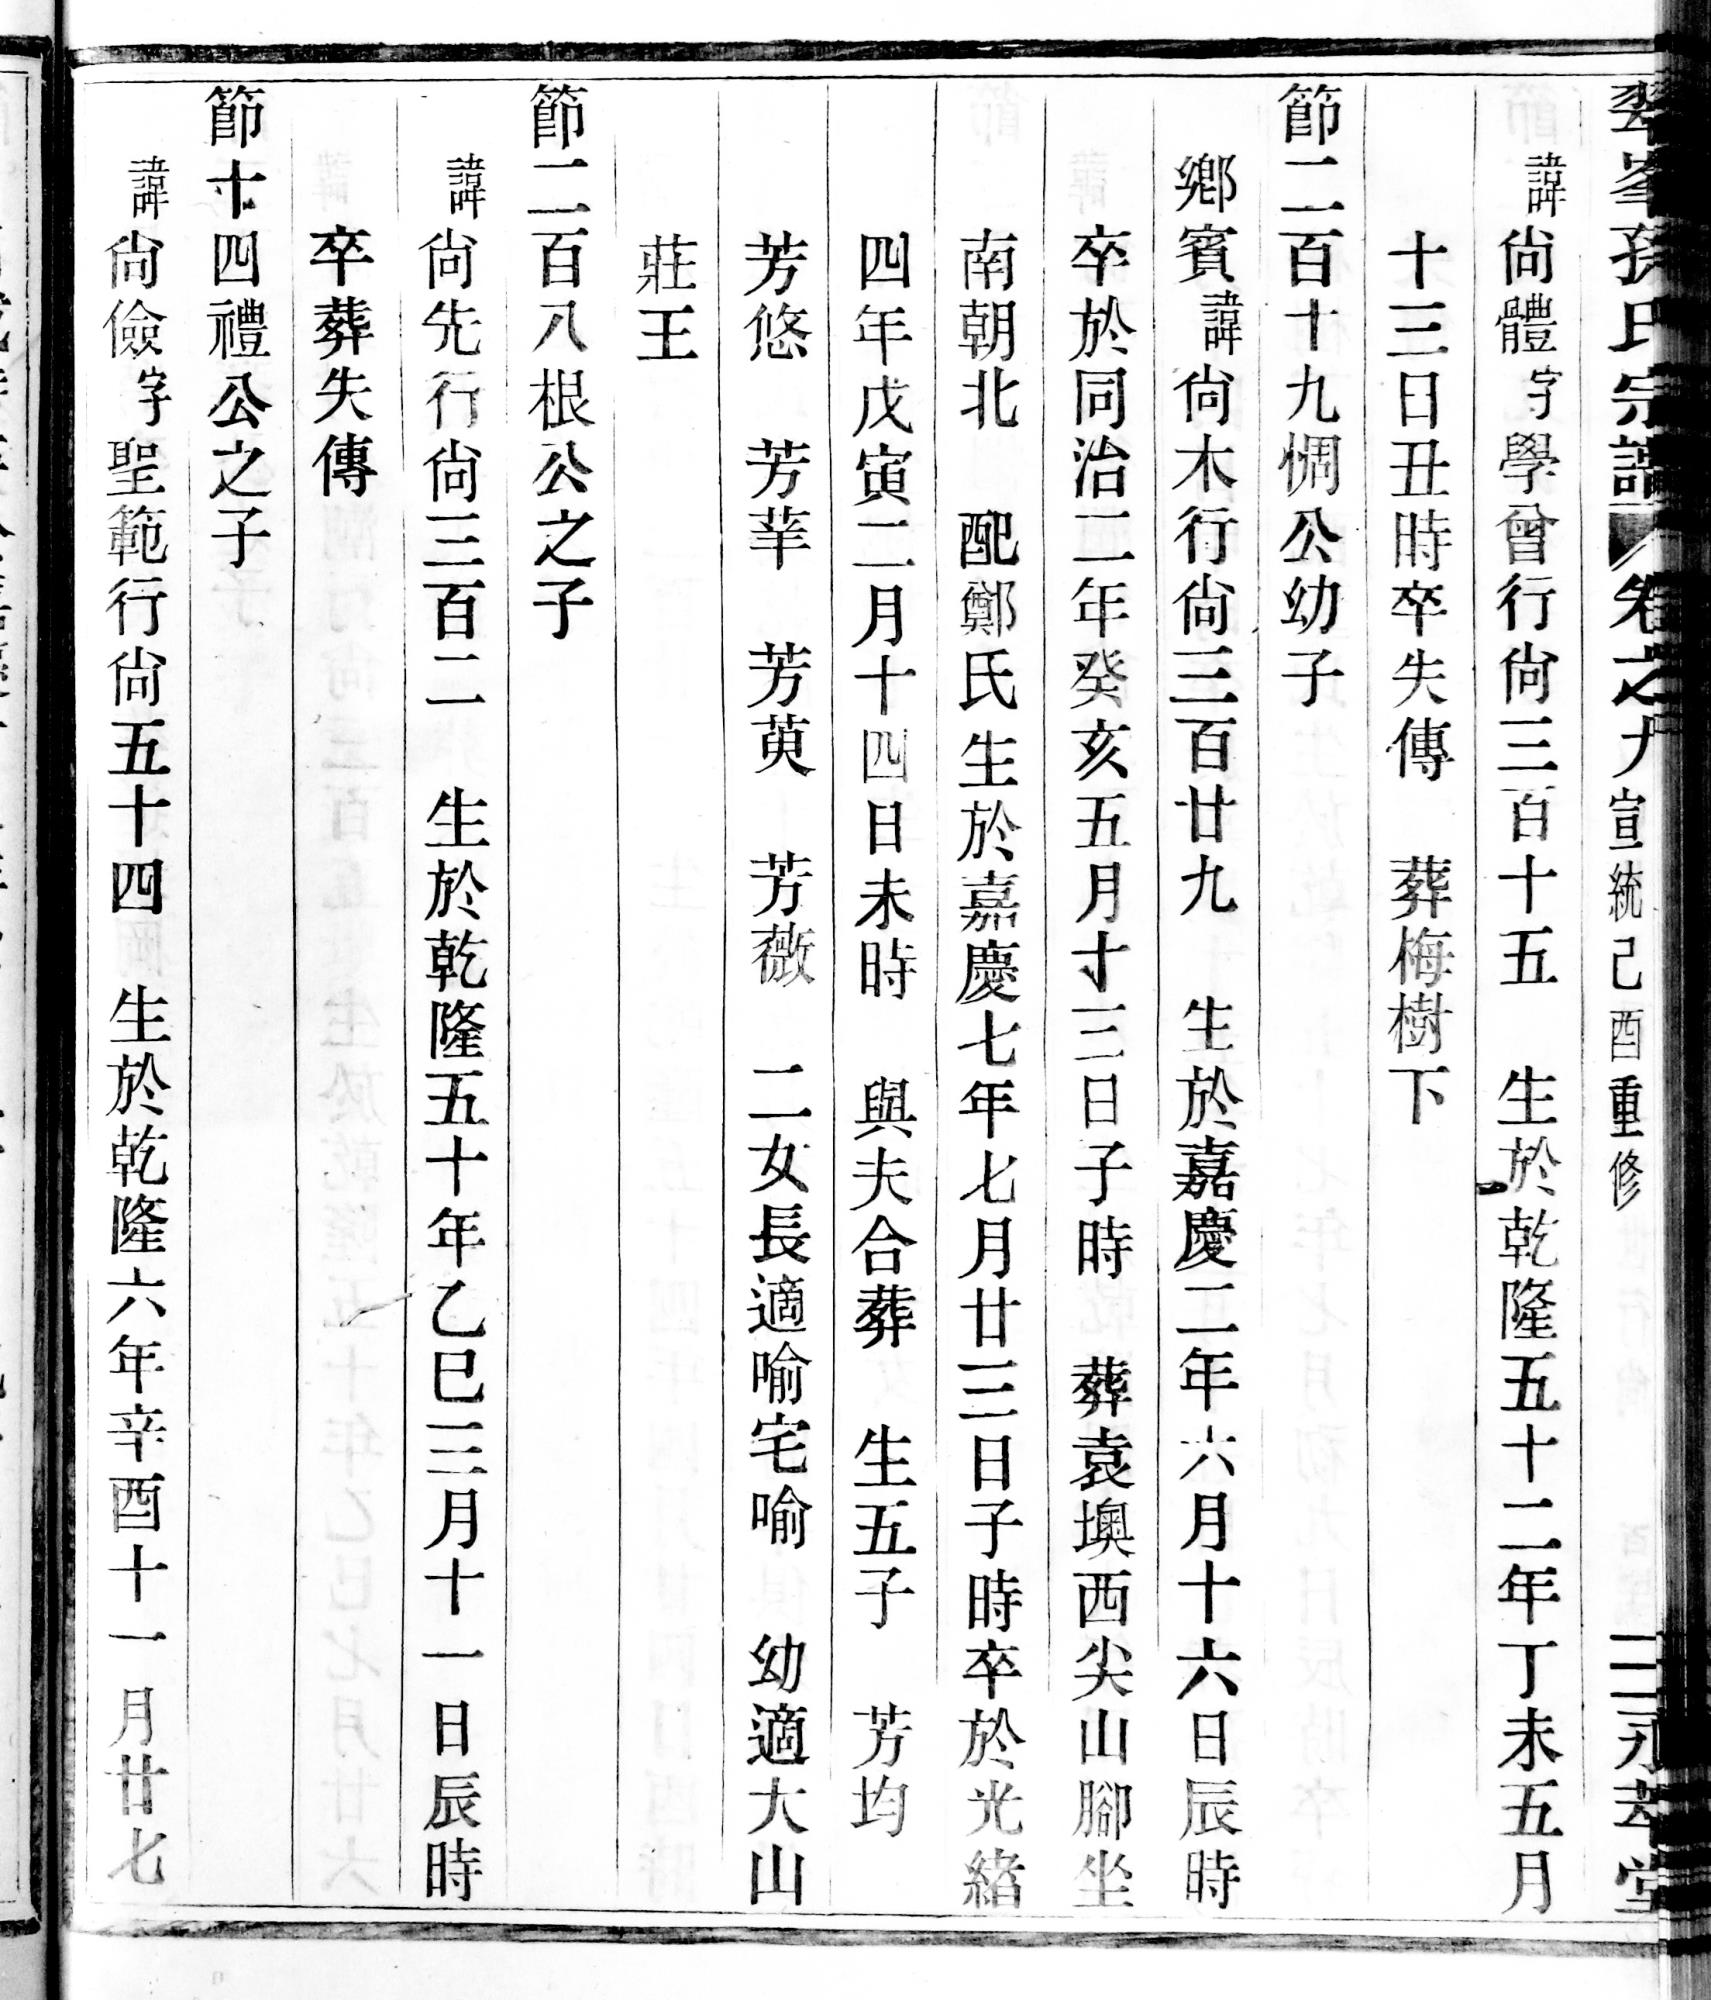 翠峯孫氏宗譜 卷之九 宣統己酉重修 二 永萃堂
諱尙體字學曾行尙三百十五 生於乾隆五十二年丁未五月
十三日丑時卒失傳 葬梅樹下
節二百十九惆公幼子
鄉賓諱尙木行尙三百廿九 生於嘉慶二年六月十六日辰時
卒於同治二年癸亥五月十三日子時 葬袁墺西尖山腳坐
南朝北 配鄭氏生於嘉慶七年七月廿三日子時卒於光緒
四年戊寅二月十四日未時 與夫合葬 生五子 芳均
芳悠 芳莘 芳萸 芳薇 二女長適喻宅喻 幼適大山
莊王
節二百八根公之子
諱尙先行尙三百二 生於乾隆五十年乙巳三月十一日辰時
卒葬失傳
節十四禮公之子
諱尙儉字聖範行尙五十四 生於乾隆六年辛酉十一月廿七